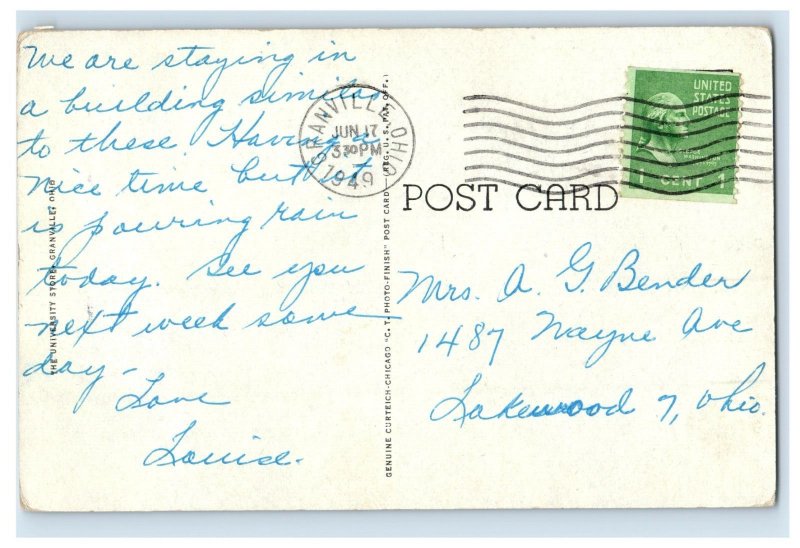 We are staying in
a building similar
to these Having a
nice time but it
is pouring rain
today. See you
next week some
day-
Love
Louise.
THE UNIVERSITY STORE, GRANVILLE, OHIO
GENUINE CURTEICH-CHICAGO "C. T. PHOTO-FINISH" POST CARD (REG. U. S. PAT. OFF.)
GRANVILLE, OHIO
JUN 17
3 30 PM
1949
UNITED
STATES
POSTAGE
WASHINGTON
1 CENT 1
POST CARD
Mrs. A. G. Bender
1487 Wayne Ave
Lakewood 7, Ohio.